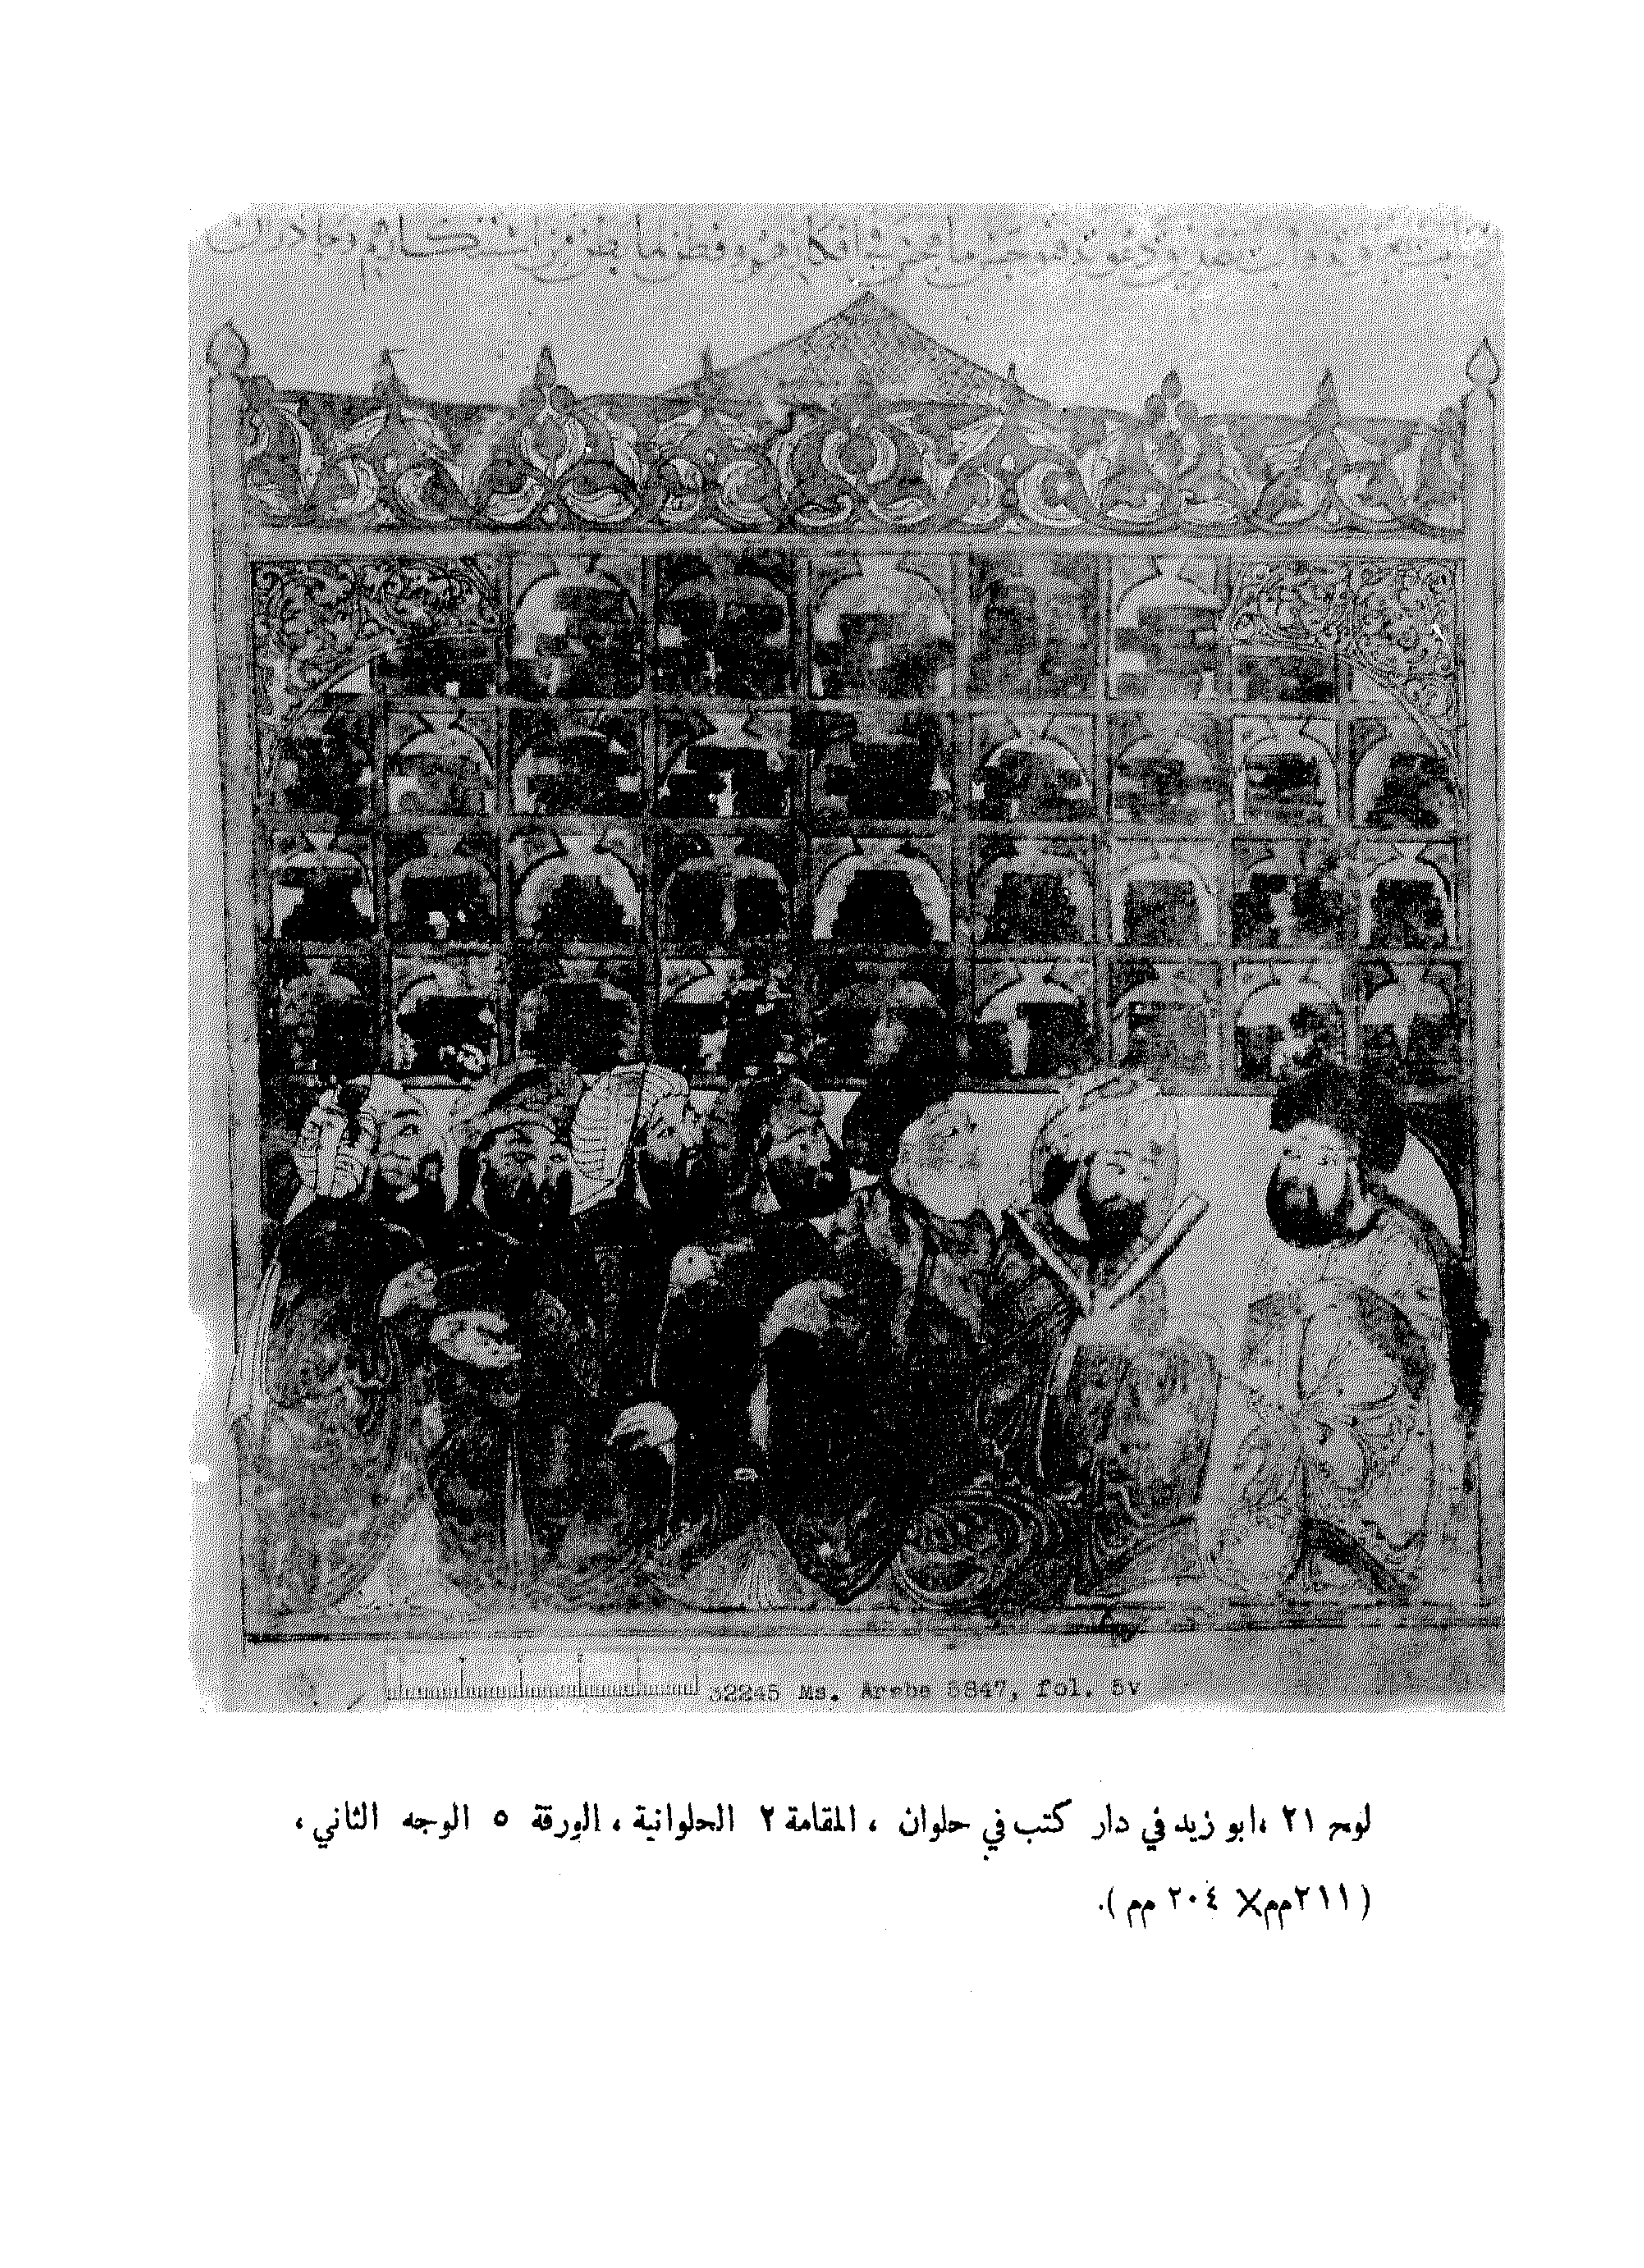 32245 Ms. Arabe 5847, fol. 5v
لوح ٢١ ،ابو زيد في دار كتب في حلوان ، المقامة ٢ الحلوانية ، الورقة ٥ الوجه الثاني ،
(٢١١مم× ٢٠٤ مم ).